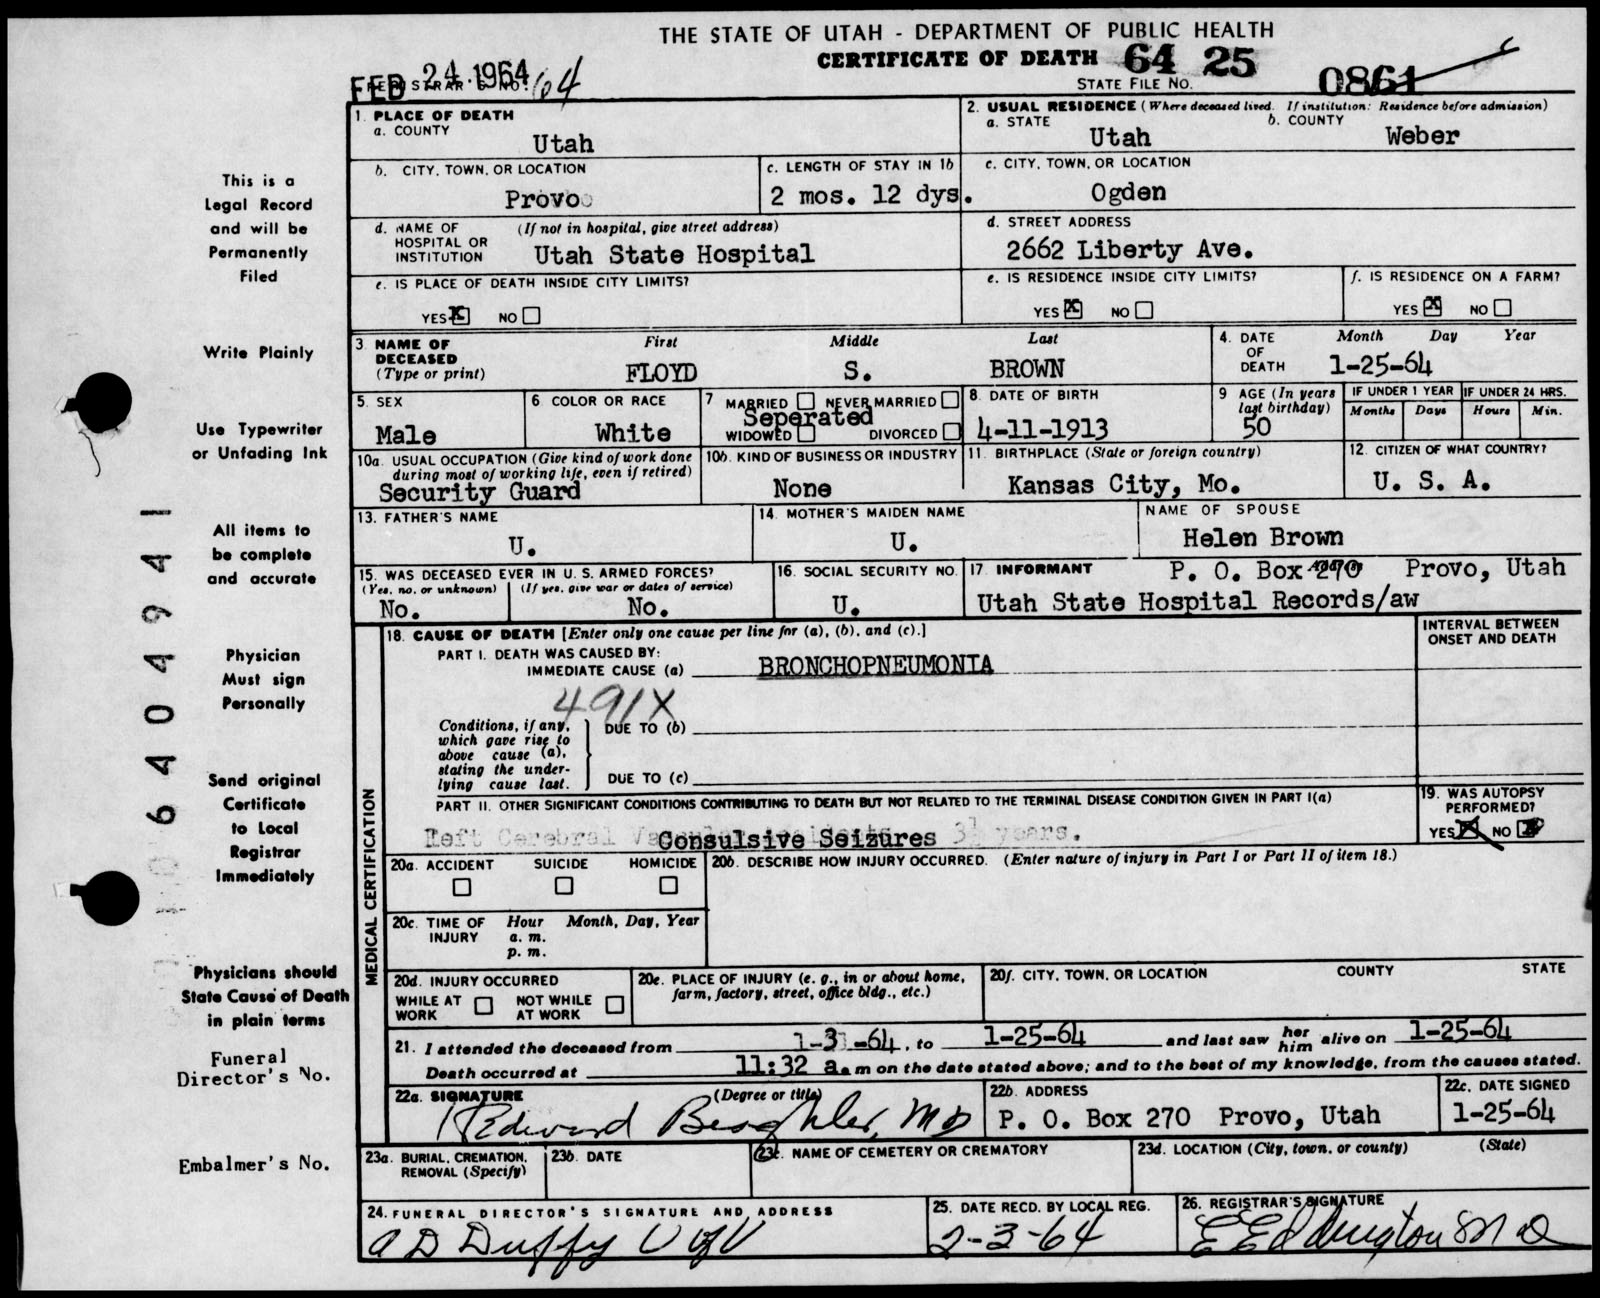 THE STATE OF UTAH - DEPARTMENT OF PUBLIC HEALTH
CERTIFICATE OF DEATH 64 25
FEB 24 1964
STATE FILE NO. 0861
64
1. PLACE OF DEATH
a. COUNTY
Utah
2. USUAL RESIDENCE (Where deceased lived. If institution: Residence before admission)
a. STATE
Utah
b. COUNTY
Weber
b. CITY, TOWN, OR LOCATION
Provo
c. LENGTH OF STAY IN 1b
2 mos. 12 dys.
c. CITY, TOWN, OR LOCATION
Ogden
d. NAME OF HOSPITAL OR INSTITUTION
(If not in hospital, give street address)
Utah State Hospital
d. STREET ADDRESS
2662 Liberty Ave.
e. IS PLACE OF DEATH INSIDE CITY LIMITS?
YES X NO
e. IS RESIDENCE INSIDE CITY LIMITS?
YES X NO
f. IS RESIDENCE ON A FARM?
YES X NO
3. NAME OF DECEASED
(Type or print)
First Middle Last
FLOYD S. BROWN
4. DATE OF DEATH
Month Day Year
1-25-64
5. SEX
Male
6 COLOR OR RACE
White
7 MARRIED NEVER MARRIED
Seperated
WIDOWED DIVORCED
8. DATE OF BIRTH
4-11-1913
9 AGE (In years last birthday)
50
IF UNDER 1 YEAR
Months Days
IF UNDER 24 HRS.
Hours Min.
10a. USUAL OCCUPATION (Give kind of work done during most of working life, even if retired)
Security Guard
10b. KIND OF BUSINESS OR INDUSTRY
None
11. BIRTHPLACE (State or foreign country)
Kansas City, Mo.
12. CITIZEN OF WHAT COUNTRY?
U. S. A.
13. FATHER'S NAME
U.
14. MOTHER'S MAIDEN NAME
U.
NAME OF SPOUSE
Helen Brown
15. WAS DECEASED EVER IN U. S. ARMED FORCES?
(Yes, no. or unknown) (If yes, give war or dates of service)
No. No.
16. SOCIAL SECURITY NO.
U.
17 INFORMANT
P. O. Box 270 Provo, Utah
Utah State Hospital Records/aw
MEDICAL CERTIFICATION
18. CAUSE OF DEATH [Enter only one cause per line for (a), (b), and (c).]
INTERVAL BETWEEN ONSET AND DEATH
PART I. DEATH WAS CAUSED BY:
IMMEDIATE CAUSE (a) BRONCHOPNEUMONIA
491X
Conditions, if any, which gave rise to above cause (a), stating the underlying cause last.
DUE TO (b)
DUE TO (c)
PART II. OTHER SIGNIFICANT CONDITIONS CONTRIBUTING TO DEATH BUT NOT RELATED TO THE TERMINAL DISEASE CONDITION GIVEN IN PART I(a)
Left Cerebral Consulsive Seizures 3½ years.
19. WAS AUTOPSY PERFORMED?
YES NO
20a. ACCIDENT SUICIDE HOMICIDE
20b. DESCRIBE HOW INJURY OCCURRED. (Enter nature of injury in Part I or Part II of item 18.)
20c. TIME OF INJURY
Hour Month, Day, Year
a. m.
p. m.
20d. INJURY OCCURRED
WHILE AT WORK
NOT WHILE AT WORK
20e. PLACE OF INJURY (e. g., in or about home, farm, factory, street, office bldg., etc.)
20f. CITY, TOWN, OR LOCATION COUNTY STATE
21. I attended the deceased from 1-3 -64, to 1-25-64 and last saw her him alive on 1-25-64
Death occurred at 11:32 a.m on the date stated above; and to the best of my knowledge, from the causes stated.
22a. SIGNATURE (Degree or title)
Edward MD
22b. ADDRESS
P. O. Box 270 Provo, Utah
22c. DATE SIGNED
1-25-64
23a. BURIAL, CREMATION, REMOVAL (Specify)
23b. DATE
23c. NAME OF CEMETERY OR CREMATORY
23d. LOCATION (City, town, or county) (State)
24. FUNERAL DIRECTOR'S SIGNATURE AND ADDRESS
A D Duffy U of U
25. DATE RECD. BY LOCAL REG.
2-3-64
26. REGISTRAR'S SIGNATURE
This is a
Legal Record
and will be
Permanently
Filed
Write Plainly
Use Typewriter
or Unfading Ink
All items to
be complete
and accurate
Physician
Must sign
Personally
Send original
Certificate
to Local
Registrar
Immediately
Physicians should
State Cause of Death
in plain terms
Funeral
Director's No.
Embalmer's No.
6404941